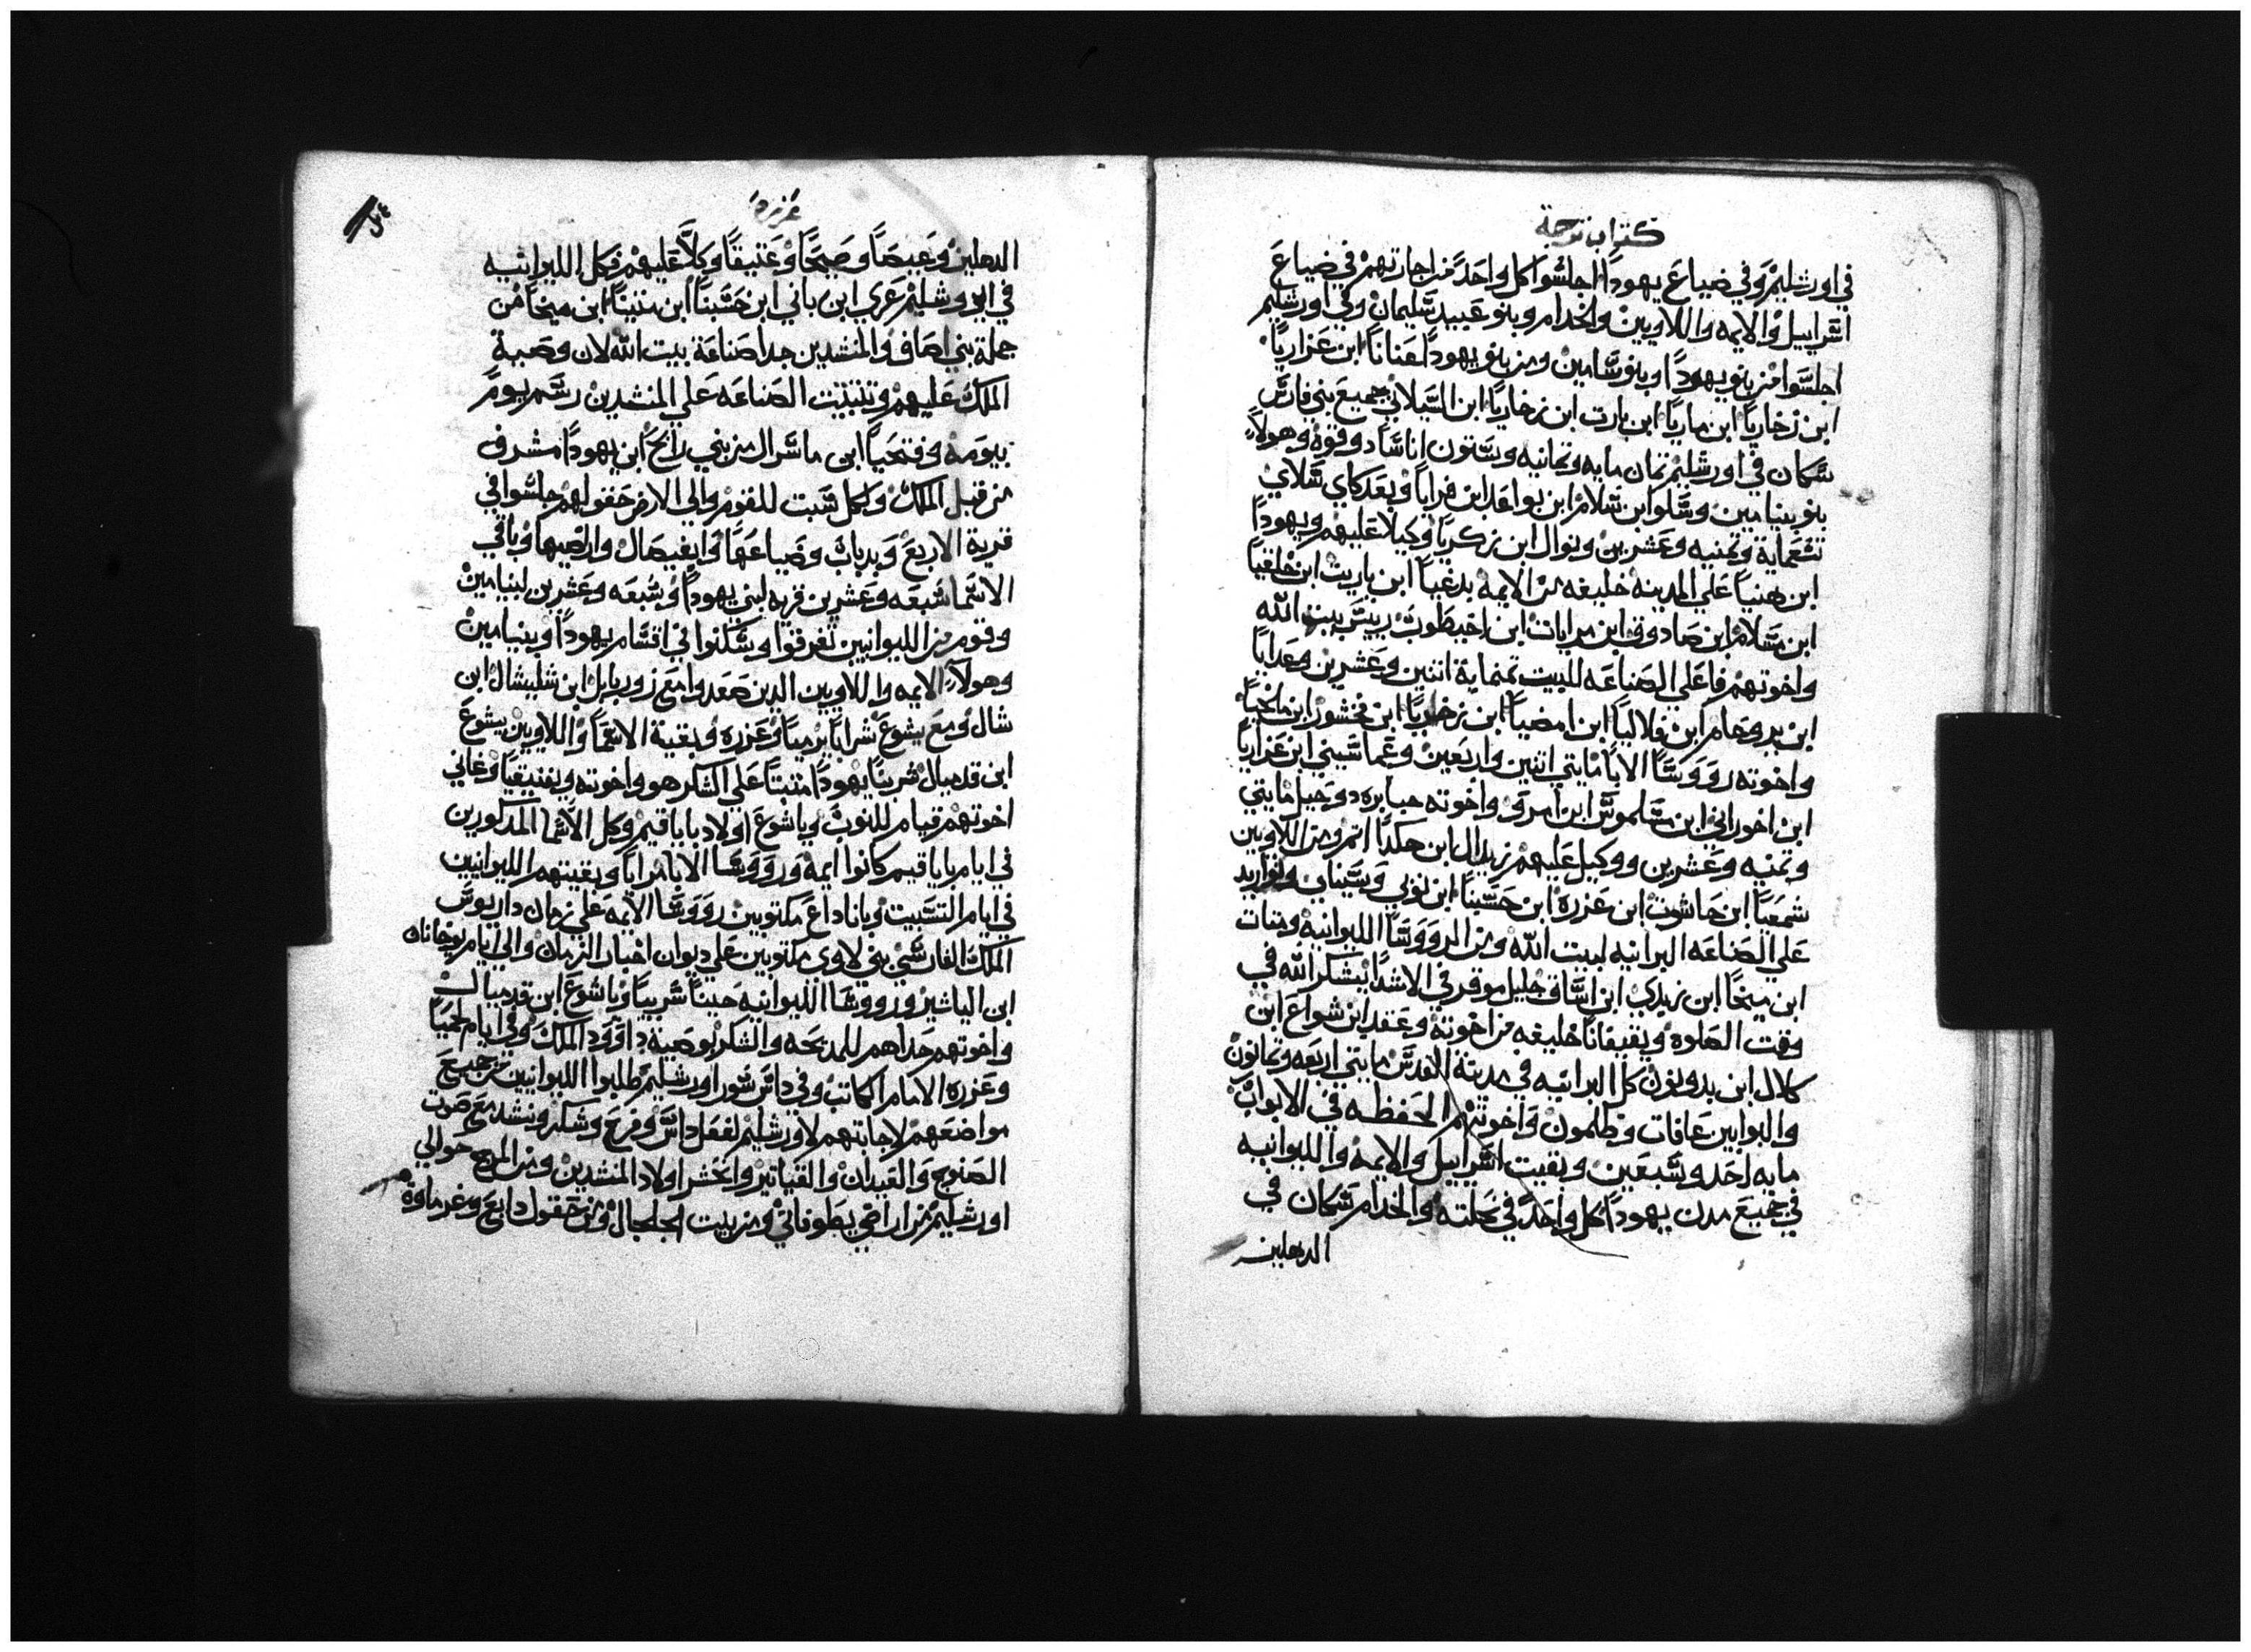 كتاب ترجمة
في اورشليم وفي ضياع يهودا اجلسوا كل واحد من اجازتهم في ضياع
اسراييل والايمه واللاويين والخدام وبنو عبيد سليمان وفي اورشليم
اجلسوا من بنو يهودا وبنو سامين ومن بنو يهودا لعنانا ابن عزاريا
ابن زخاريا ابن ماريا ابن بارت ابن زخاريا ابن السيلاني جميع بني فارس
سكان في اورشليم تمان مايه وتمانيه وستون اناسا دو قوة وهولاء
بنو بنيامين وسلوا ابن سلام ابن بواعد ابن فرايا وبعد كاي سلاي
تسعماية وتمنيه وعشرين ونوال ابن زكريا وكيلا عليهم ويهودا
ابن هنيا علي المدينه خليفه من الايمة بدغيا ابن ياريت ابن حلقيا
ابن مسلام ابن صادوق ابن مرايات ابن اخيطوب رييس بيت الله
واخوتهم فاعلي الصناعه للبيت تمنماية اتنين وعشرين وعدايا
ابن يروحام ابن فلاليا ابن امضيا ابن زخاريا ابن فخشور ابن ملخيا
واخوته رووسا الابا مايتي اتنين واربعين وعماسيني ابن عزاريا
ابن اخوراني ابن مسلموس ابن امروي واخوته جبابره دو حيل مايتي
وتمنيه وعشرين ووكيل عليهم زيدال ابن هكدا اتم ومن اللاويين
شمعيا ابن حاشوت ابن عزره ابن حسبنا ابن نوبي وسيناي
علي الصناعه البرانيه لبيت الله ومن الرووسا الليوانيه ومتنات
ابن ميخا ابن زيدي ابن اساف جليل موقر في الاشدا يشكر الله في
وقت الصلوة ويقبقانا خليفه من اخوته وعقد ابن شواع ابن
كلال ابن يدوتون كل البرانيه في مدينة القدس مايتي اربعه وتمانون
والبوابين عاقات وطلمون واخوتهم الحفظه في الابواب
مايه احد وسبعين وبقيت اسراييل والايمة والليوانيه
في جميع مدن يهودا كل واحد في نحلته والخدام سكان في
الدهليز
عزره
الدهليز وعيصا وصبحا وعتيقا وكلا عليهم فكل الليوانيه
في ايورشليم عري ابن باني ابن حسبنا ابن متنيا ابن ميخا من
جملة بني اصاف والمنشدين جدا صناعة بيت الله لان وصية
الملك عليهم وتتبتت الصناعه علي المنشدين رسم يوم
بيومه وفتحيا ابن ماشرال من بني رابح ابن يهودا مشرف
من قبل الملك ولكل سبت للقوم والي الارض حقولهم جلسوا في
قرية الاربع وبدبات وضياعها وايغبصال واراضيها وباقي
الاسما سبعه وعشرين قريه لبني يهودا وسبعه وعشرين لبنيامين
وقوم من الليوانيين تفرقوا وسكنوا في اقسام يهودا وبنيامين
وهولاء الايمه واللاويين الدين صعدوا مع زوربابل ابن شلبشال ابن
شال ومع يشوع شرايا يرميا وعزره وبقية الاسما واللاويين يشوع
ابن قدميال شربنا يهودا متنيا علي الشكر هو واخوته وبفتيقيا وغاني
اخوتهم قيام للنوب وياشوع اولاد ياياقيم وكل الاسما المدكورين
في ايام ياياقيم كانوا ايمه ورووسا الابا مرايا وبقيتهم الليوانيين
في ايام التسبيت وياناداع مكتوبين رووسا الايمة علي زمان داريوس
الملك الفارسي بني لاوي مكتوبين علي ديوان اخبار الزمان والي ايام يوخانان
ابن الياشيز ورووسا الليوانيه حيبنا شربيا وياشوع ابن قدميال
واخوتهم حداهم للمدبحه والشكر بوصية داوود الملك وفي ايام لحميا
وعزره الامام الكاتب وفي داس سور اورشليم طلبوا الليوانيين من جميع
مواضعهم لاجابتهم لاورشليم لفعل داس وفرح وشكر ونشد مع صوت
الصنوج والعيدان والقياتير واتحشر اولاد المنشدين ومن المرج حوالي
اورشليم من اراضي يطوفاتي ومن بيت الجلجال ومن حقول دابع وغرماوة